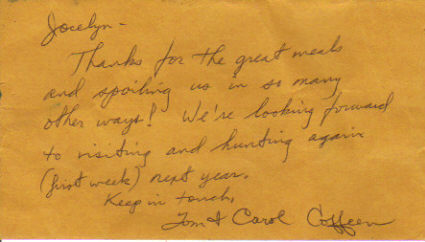 Jocelyn-
Thanks for the great meals
and spoiling us in so many
other ways! We're looking forward
to visiting and hunting again
(first week) next year.
Keep in touch,
Tom & Carol Coffeen